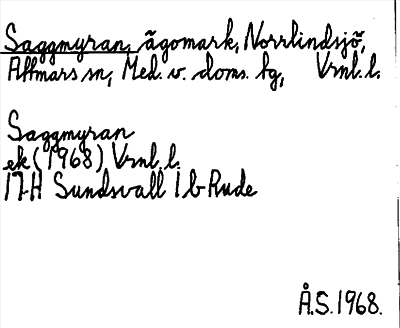 Saggmyran, ägomark, Norrlindsjö,
Attmars sn, Med. v. doms. tg, Vrnl. l.
Saggmyran
ek (1968) Vrnl. l.
17H Sundsvall 1 b Rude
Å.S. 1968.